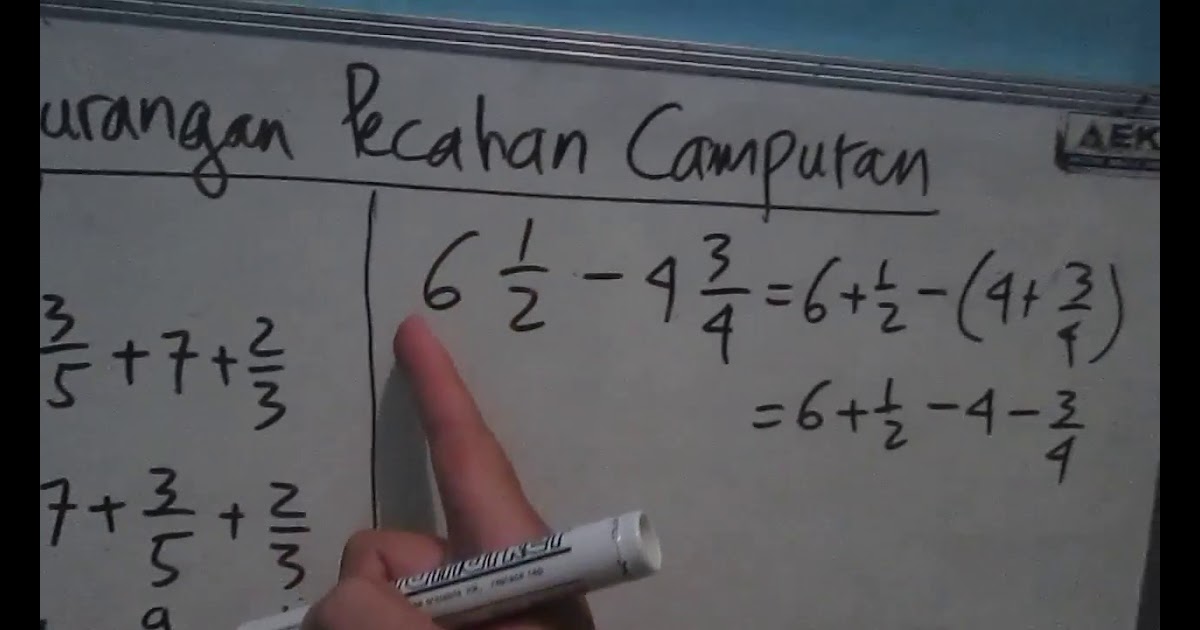 urangan Pecahan Campuran
AEK
3/5 + 7 + 2/3
7 + 3/5 + 2/3
9
6 1/2 - 4 3/4 = 6 + 1/2 - (4 + 3/4)
= 6 + 1/2 - 4 - 3/4